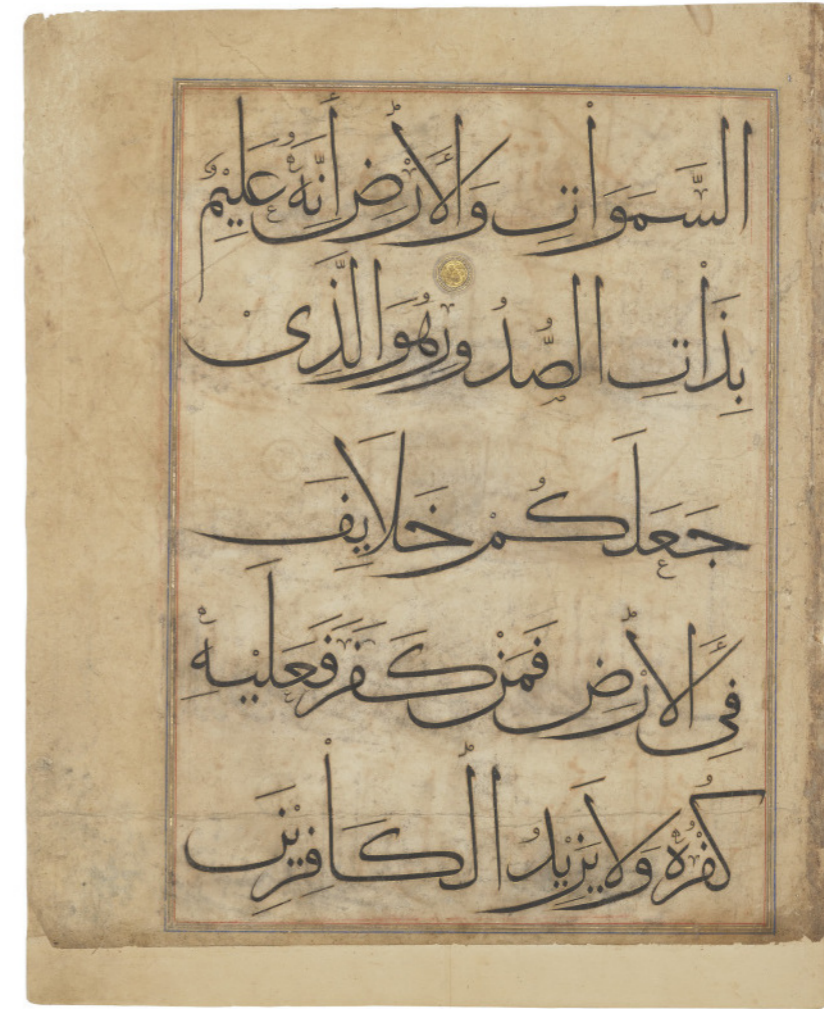 السَّمَوَاتِ وَالْأَرْضِ إِنَّهُ عَلِيمٌ
بِذَاتِ الصُّدُورِ هُوَ الَّذِى
جَعَلَكُمْ خَلَايِفَ
فِى الْأَرْضِ فَمَنْ كَفَرَ فَعَلَيْهِ
كُفْرُهُ وَلَا يَزِيدُ الْكَافِرِينَ